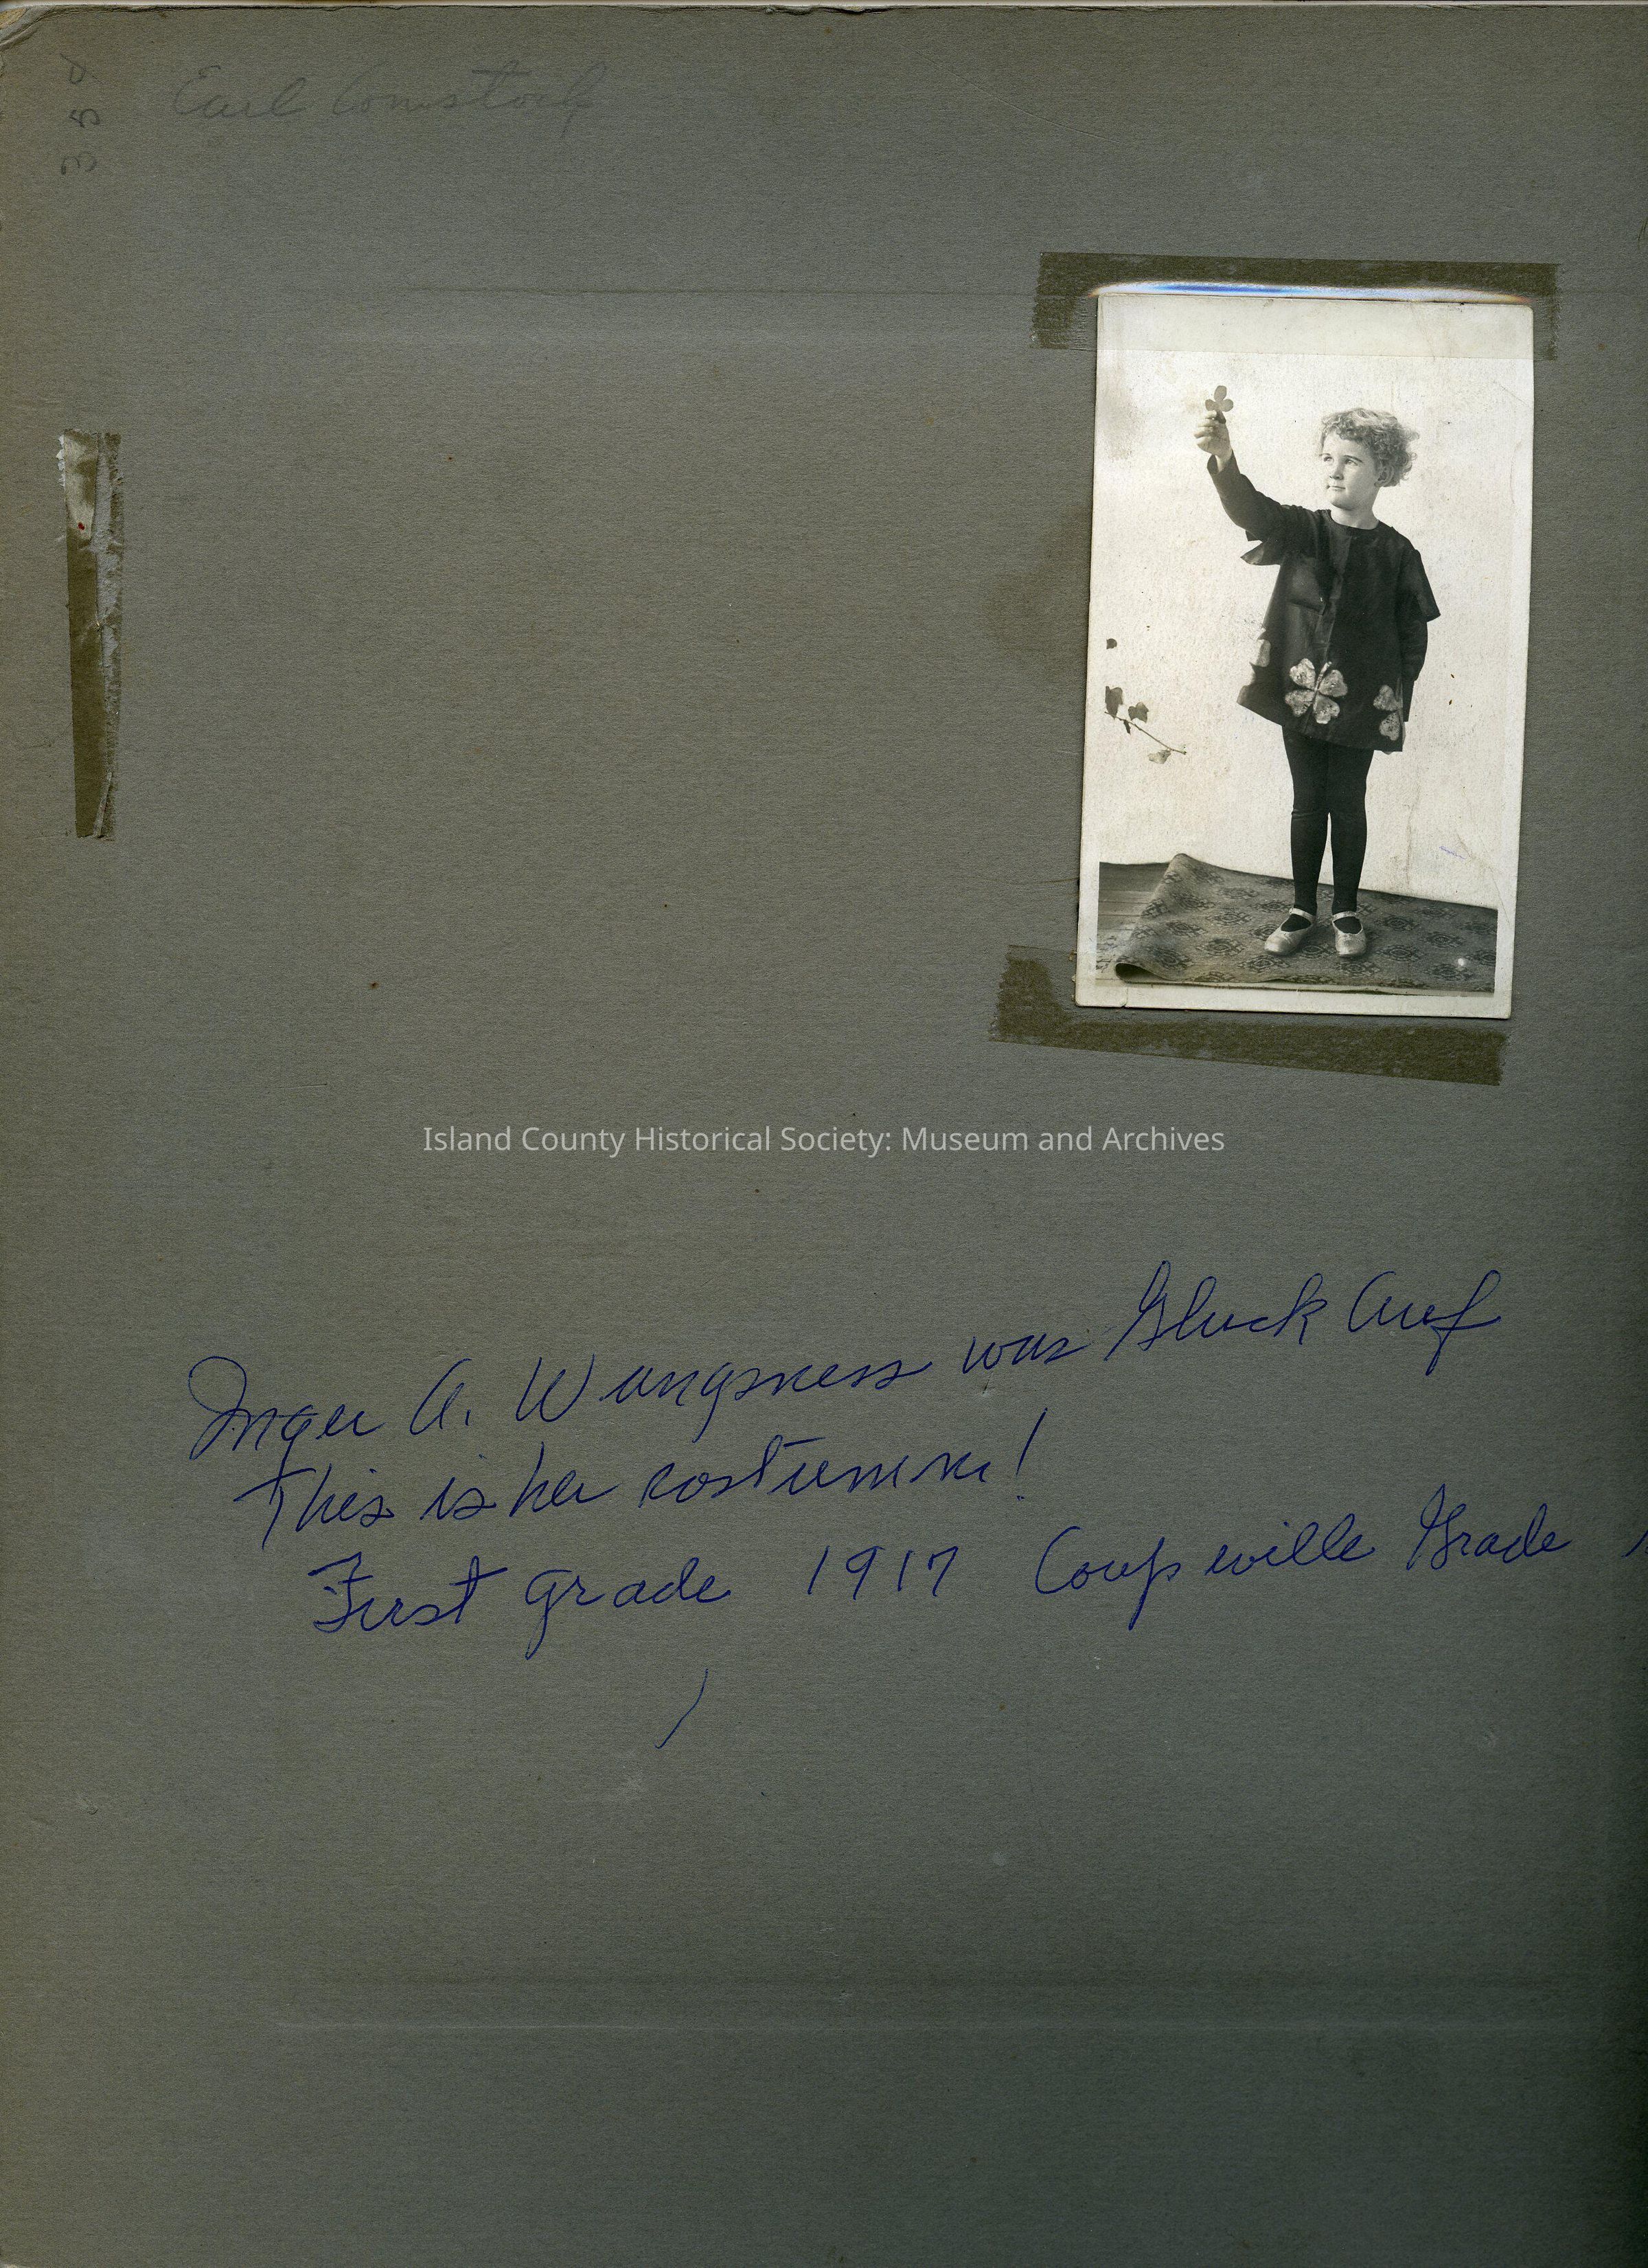 350
Earl Comstock
Island County Historical Society: Museum and Archives
Inger A. Wangsness was Gluck Auf
This is her costumne!
First grade 1917 Coupeville Grade